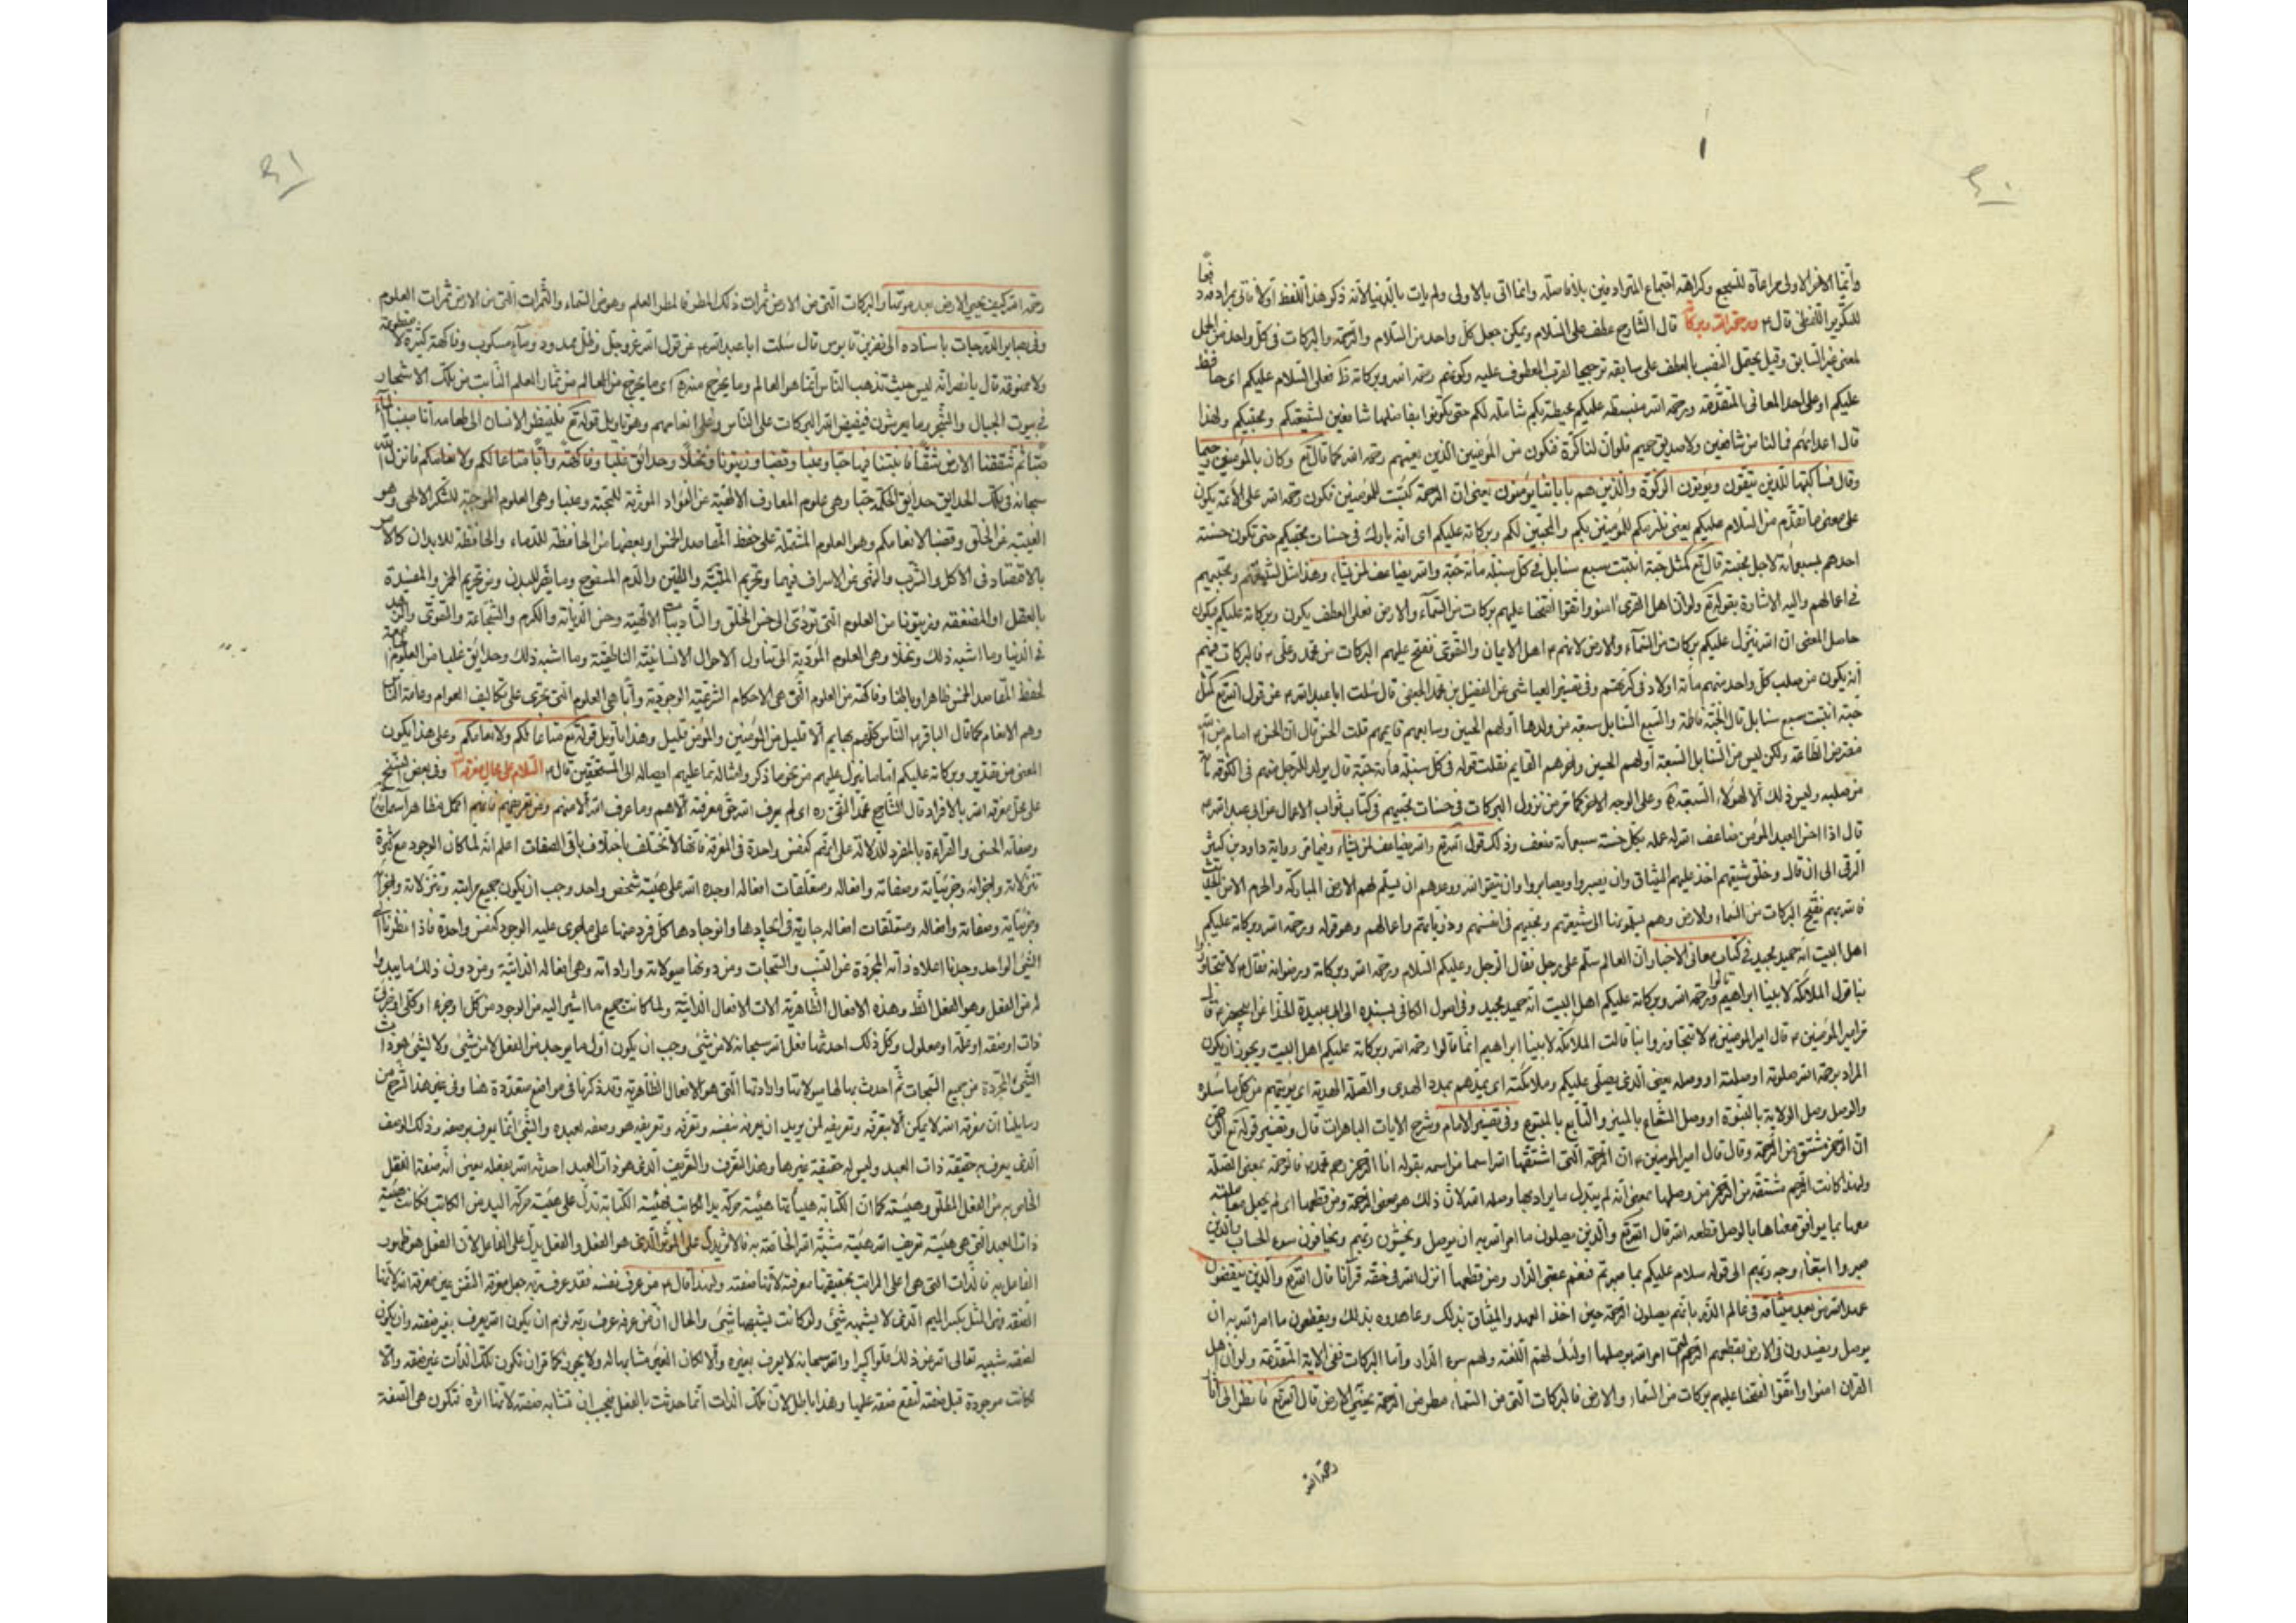 وانما الاخر الاولى مراعاة للسجع وكراهة اجتماع المترادفين بلا فاصلة وانما اتى بالاولى ولم يات بالدنيا لانه ذكر هذا اللفظ اولا فاتى بمرادفه دفعا
للتكرير اللفظى قال ع ورحمة الله وبركاته قال الشارح عطف على السلام ويمكن جعل كل واحد من السلام والرحمة والبركات فى كل واحد من الجمل
لمعنى غير السابق وقيل يحتمل النصب بالعطف على سابقه ترجيحا لقرب المعطوف عليه وكونهم رحمة الله وبركاته فعلى السلام عليكم اى حافظ
عليكم او على احد المعانى المتقدمة ورحمة الله منبسطة عليكم محيطة بكم شاملة لكم حتى تكونوا بفاضلها شافعين لشيعتكم ومحبيكم ولهذا
قال اعدائهم فما لنا من شافعين ولا صديق حميم فلو ان لنا كرة فنكون من المؤمنين الذين نعيمهم رحمة الله كما قال تع وكان بالمؤمنين رحيما
وقال فسأكتبها للذين يتقون ويؤتون الزكوة والذين هم باياتنا يؤمنون يعنى ان الرحمة كتبت للمؤمنين فتكون رحمة الله على الائمة يكون
على معنى ما تقدم من السلام عليكم يعنى للمؤمنين بكم والمحبين لكم وبركاته عليكم اى انه بارك فى حسنات محبيكم حتى تكون حسنة
احدهم بسبعمائة لاجل محبته قال تع كمثل حبة انبتت سبع سنابل فى كل سنبلة مائة حبة والله يضاعف لمن يشاء وهذا مثل لشيعتهم ومحبيهم
فى اعمالهم واليه الاشارة بقوله تع ولو ان اهل القرى امنوا واتقوا لفتحنا عليهم بركات من السماء والارض فعلى العطف يكون وبركاته عليكم فيكون
حاصل المعنى ان الله ينزل عليكم بركات من السماء والارض لانهم ع اهل الايمان والتقوى ففتح عليهم البركات من محمد وعلى ع فالبركات فيهم
ان يكون من صلب كل واحد منهم مائة اولاد فى كرتهم وفى تفسير العياشى عن المفضل بن محمد الجعفى قال سئلت ابا عبد الله ع عن قول الله تع كمثل
حبة انبتت سبع سنابل قال الحبة فاطمة والسبع السنابل سبعة من ولدها اولهم الحسين وسابعهم قائمهم قلت الحسن قال ان الحسن ع امام من الله
مفترض الطاعة ولكن ليس من السنابل السبعة اولهم الحسين واخرهم القايم فقلت قوله فى كل سنبلة مائة حبة قال يولد للرجل منهم فى الكوفة مائة
من صلبه وليس ذلك الا لهؤلاء السبعة وعلى الوجه الاخر كما مر من نزول البركات فى حسنات محبيهم فى كتاب ثواب الاعمال عن ابى عبد الله ع
قال اذا احسن العبد المؤمن ضاعف الله له عمله بكل حسنة سبعمائة ضعف وذلك قول الله تع والله يضاعف لمن يشاء وفيما مر رواية داود بن كثير
الرقى الى ان قال وخلق شيعتهم اخذ عليهم الميثاق وان يصبروا ويصابروا وان يتقوا الله ووعدهم ان يسلم لهم الارض المباركة والحرم الامن
فالله بهم يفتح البركات من السماء والارض وهم الى شيعتهم ومحبيهم فى انفسهم وذرياتهم واعمالهم وهو قوله ورحمة الله وبركاته عليكم
اهل البيت انه حميد مجيد فى كتاب معانى الاخبار ان العالم سلم على رجل فقال الرجل وعليكم السلام ورحمة الله وبركاته ورضوانه فقال ع لا تتجاوزوا
بنا قول الملائكة لابينا ابراهيم قالوا ورحمة الله وبركاته عليكم اهل البيت انه حميد مجيد وفى اصول الكافى بسنده الى ابى عبيدة الحذا عن ابى جعفر ع قال
مر امير المؤمنين ع قال امير المؤمنين ع لا تتجاوزوا بنا ما قالت الملائكة لابينا ابراهيم انما قالوا رحمة الله وبركاته عليكم اهل البيت ويجوز ان يكون
المراد برحمة الله صلوته او صلته او وصله يعنى الذى يصلى عليكم وملائكته اى يمدهم بمدد الهدى والصلة الهدية اى يؤتيهم من كل ما سئلوه
والوصل وصل الولاية بالنبوة او وصل الشعاع بالمنير والتابع بالمتبوع وفى تفسير الامام وشرح الايات الباهرات قال وتفسير قوله تع الرحمن
ان الرحمن مشتق من الرحمة وقال قال امير المؤمنين ع ان الرحمة التى اشتقها الله اسما من اسمه بقوله انا الرحمن رحم محمد ع فالرحمة بمعنى الصلة
ولهذا كانت الرحم مشتقة من الرحمن من وصلها بمعنى انه لم يبدل ما يراد بها وصله الله لان ذلك هو معنى الرحمة ومن قطعها اى لم يجعل معاملته
معها بما يوافق معناها بالوصل قطعه الله قال الله تع والذين يصلون ما امر الله به ان يوصل ويخشون ربهم ويخافون سوء الحساب والذين
صبروا ابتغاء وجه ربهم الى قوله سلام عليكم بما صبرتم فنعم عقبى الدار ومن قطعها انزل الله فى حقه قرآنا قال الله تع والذين ينقضون
عهد الله من بعد ميثاقه فى عالم الذر بانهم يصلون الرحمة حين اخذ العهد والميثاق بذلك وعاهدوه بذلك ويقطعون ما امر الله به ان
يوصل ويفسدون فى الارض بقطعهم الرحم التى امر الله بوصلها اولئك لهم اللعنة ولهم سوء الدار واما البركات ففى الاية المتقدمة ولو ان اهل
القرى امنوا واتقوا لفتحنا عليهم بركات من السماء والارض فالبركات التى من السماء مطر من الرحمة يحيى الارض قال الله تع فانظر الى آثار
رحمة الله
رحمة الله كيف يحيى الارض بعد موتها والبركات التى من الارض ثمرات ذلك المطر فالمطر العلم وهو من السماء والثمرات التى من الارض ثمرات العلوم
وفى بصاير الدرجات باسناده الى نصر بن قابوس قال سئلت ابا عبد الله ع عن قول الله عز وجل وظل ممدود وماء مسكوب وفاكهة كثيرة لا مقطوعة
ولا ممنوعة قال يا نصر انه ليس حيث تذهب الناس انما هو العالم وما يخرج منه اى ما يخرج من العالم من ثمار العلم النابت من تلك الاشجار
فى بيوت الجبال والشجر ومما يعرشون فيفيض الله البركات على الناس وعلى انعامهم وهو تاويل قوله تع فلينظر الانسان الى طعامه انا صببنا الماء
صبا ثم شققنا الارض شقا فانبتنا فيها حبا وعنبا وقضبا وزيتونا ونخلا وحدائق غلبا وفاكهة وأبا متاعا لكم ولانعامكم فانزل الله
سبحانه فى تلك الحدايق حدايق الحكمة حبا وهى علوم المعارف الالهية عن الفؤاد المورثة للمحبة وعنبا وهى العلوم الموجبة للشكر الالهى وهو
الغيبة عن الخلق وقضبا لانعامكم وهو العلوم المشتملة على حفظ المقاصد الخمس او بعضها من الحافظة للدماء والحافظة للابدان كالامر
بالاقتصاد فى الاكل والشرب والنهى عن الاسراف فيهما وتحريم الميتة والدم المسفوح وما يضر للبدن ومن تحريم الخمر والمفسدة
بالعقل او المضعفة وزيتونا من العلوم التى تؤدى الى حسن الخلق والتاديبات الالهية وحسن الديانة والكرم والشجاعة والتقوى والزهد
فى الدنيا وما اشبه ذلك ونخلا وهى العلوم المؤدية الى تناول الاحوال الانسانية الناطقية وما اشبه ذلك وحدائق غلبا من العلوم
لحفظ المقاصد الخمس ظاهرا وباطنا وفاكهة من العلوم التى هى الاحكام الشرعية الوجودية وأبا هى العلوم التى تجرى على تكاليف العوام وعامة الناس
وهم الانعام كما قال الباقر ع الناس كلهم بهايم الا قليل من المؤمنين والمؤمن قليل وهذا تاويل قوله تع متاعا لكم ولانعامكم وعلى هذا يكون
المعنى من تقدير وبركاته عليكم اما ما ينزل عليهم من نحو ما ذكر وامثاله مما عليهم ايصاله الى المستحقين قال ع السلام على محال معرفة الله وفى بعض النسخ
على محل معرفة الله بالافراد قال الشارح محمد التقى ره اى لم يعرف الله حق معرفته الا هم وما عرف الله الا منهم ومن تعريفهم فانهم اكمل مظاهر اسمائه
وصفاته الحسنى والقراءة بالمفرد للدلالة على انهم كنفس واحدة فى المعرفة فانها لا تختلف باختلاف باقى الصفات اعلم انه لما كان الوجود مع كثرة
تنزلاته واجزائه وجزئياته وصفاته وافعاله ومتعلقات افعاله اوجده الله على هيئة شخص واحد وجب ان يكون جميع مراتبه وتنزلاته واجزائه
وجزئياته وصفاته وافعاله ومتعلقات افعاله جارية فى ايجادها وانوجادها كل فرد منها على ما جرى عليه الوجود كنفس واحدة فاذا نظرنا الى
الشئ الواحد وجدنا اعلاه ذاته المجردة عن النسب والسبحات ومن دونها ميولاته واراداته وهى افعاله الذاتية ومن دون ذلك ما يبدو
له من الفعل وهو الفعل الظاهر وهذه الافعال الظاهرية الات الافعال الذاتية ولما كانت جميع ما اشير اليه من الوجود من كل او جزء او كلى او جزئى
ذات او صفة او علة او معلول وكل ذلك احدثها فعل الله سبحانه لا من شئ وجب ان يكون اول ما يوجد من الفعل لا من شئ ولا لشئ هو ذات
الشئ المجردة من جميع السبحات ثم احدث بها لها ميولاتها واراداتها التى هو الافعال الظاهرية وقد ذكرنا فى مواضع متعددة هنا وفى غير هذا الشرح من
رسايلنا ان معرفة الله لا يمكن الا بتعرفه وتعريفه لمن يريد ان يعرفه نفسه وتعرفه وتعريفه هو وصفه لعبده والشئ انما يعرف بوصفه وذلك الوصف
الذى يعرف به حقيقة ذات العبد وليس له حقيقة غيرها وهذا التعرف والتعريف الذى هو ذات العبد احدثه الله بفعله يعنى انه صفة الفعل
الخاص به من الفعل المطلق وهيئته كما ان الكتابة هيأتها هيئة حركة يد الكاتب فهيئة الكتابة تدل على هيئة حركة اليد من الكاتب فكانت هيئة
ذات العبد التى هى هيئة تعريف الله هيئة مشية الله الخاصة به فالاثر يدل على المؤثر الذى هو الفعل والفعل يدل على الفاعل لان الفعل هو ظهور
الفاعل به فالذات التى هى اعلى المراتب بحقيقتها معرفة لانها صفته ولهذا قال ع من عرف نفسه فقد عرف ربه جعل معرفة النفس عين معرفة الله لانها
الصفة فهى المثل بكسر الميم الذى لا يشبهه شئ ولو كانت يشبهها شئ والحال ان من عرفها عرف ربه لزم ان يكون الله يعرف بغير صفته وان يكون
لصفته شبيه تعالى الله عن ذلك علوا كبيرا والله سبحانه لا يعرف بغيره والا لكان الغير مشابها له ولا يجوز كما مر ان تكون تلك الذات غير صفة والا
لكانت موجودة قبل صفته لتقع صفة عليها وهذا باطل لان تلك الذات انما حدثت بالفعل فيجب ان تشابه صفته لانها اثره فتكون هى الصفة